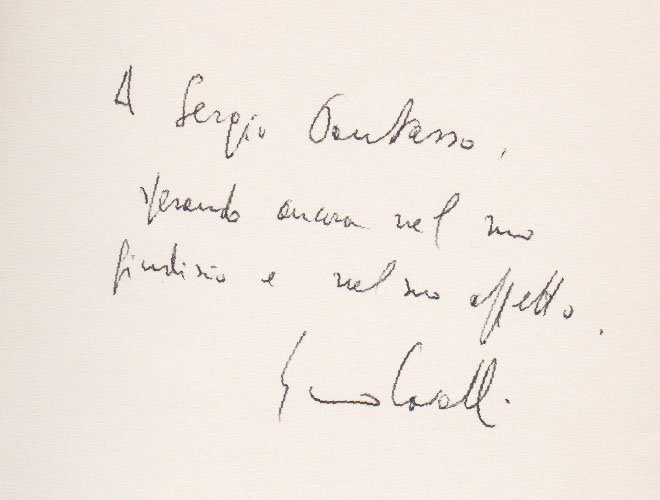 A Sergio Pautasso,
sperando ancora nel suo
giudizio e nel suo affetto.
Ennio Cavalli